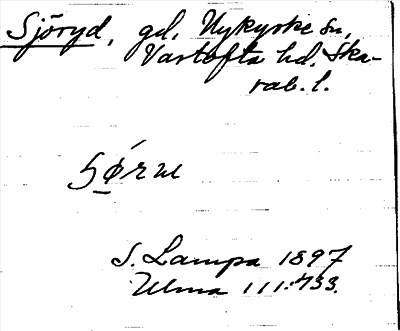 Sjöryd, gd, Nykyrke sn,
Vartofta hd. Ska-
rab. l.
S. Lampa 1897
Ulma 111:733.